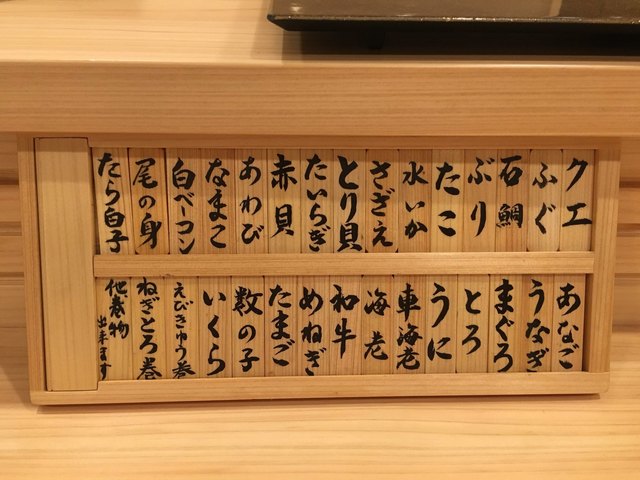 クエ
ふぐ
石鯛
ぶり
たこ
水いか
さざえ
とり貝
たいらぎ
赤貝
あわび
なまこ
白ベーコン
尾の身
たら白子
あなご
うなぎ
まぐろ
とろ
うに
車海老
海老
和牛
めねぎ
たまご
数の子
いくら
えびきゅう巻
ねぎとろ巻
他巻物
出来ます